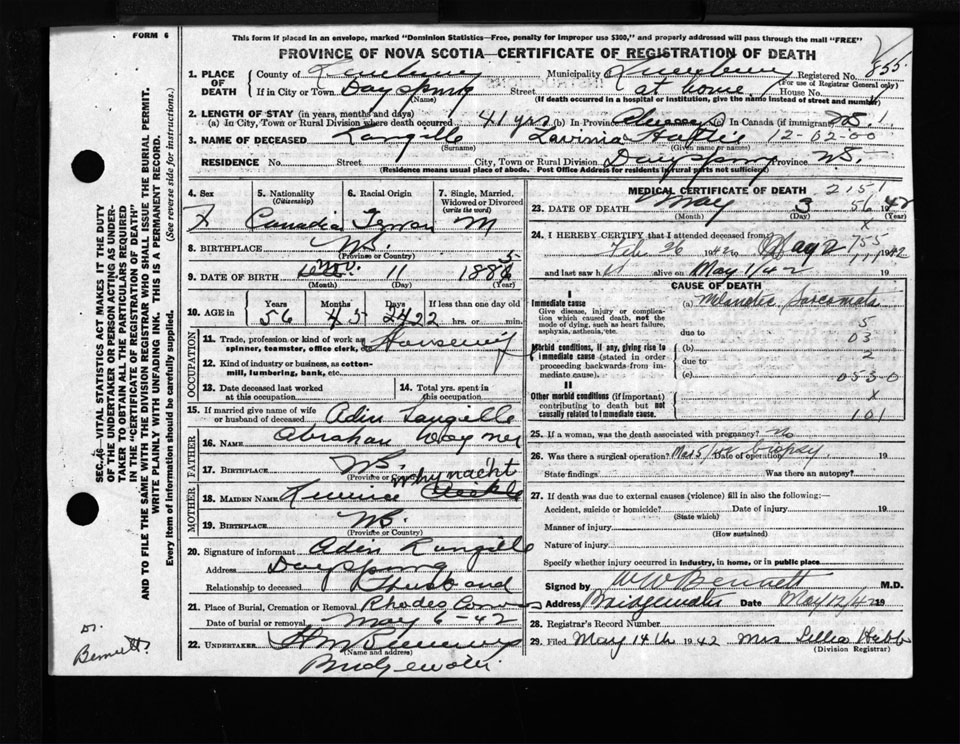 FORM 6
This form if placed in an envelope, marked "Dominion Statistics—Free, penalty for improper use $300," and properly addressed will pass through the mail "FREE"
PROVINCE OF NOVA SCOTIA—CERTIFICATE OF REGISTRATION OF DEATH
1. PLACE OF DEATH
County of Lunenburg Municipality Lunenburg Registered No. 855
(For use of Registrar General only)
If in City or Town Dayspring Street at home House No.
(Name) (If death occurred in a hospital or institution, give the name instead of street and number)
2. LENGTH OF STAY (in years, months and days)
(a) In City, Town or Rural Division where death occurred 41 yrs (b) In Province always (c) In Canada (if immigrant)
3. NAME OF DECEASED Langille Lavinia 12-02-00
(Surname) (Given name or names)
RESIDENCE No. Street City, Town or Rural Division Dayspring Province N.S.
(Residence means usual place of abode. Post Office Address for residents in rural parts not sufficient)
4. Sex F
5. Nationality (Citizenship) Canadian
6. Racial Origin German
7. Single, Married, Widowed or Divorced (write the word) M
8. BIRTHPLACE N.S.
(Province or Country)
9. DATE OF BIRTH Nov. 11 1885
(Month) (Day) (Year)
10. AGE in Years Months Days If less than one day old
56 5 22 hrs. or min.
OCCUPATION
11. Trade, profession or kind of work as spinner, teamster, office clerk, etc. Housewife
12. Kind of industry or business, as cotton-mill, lumbering, bank, etc.
13. Date deceased last worked at this occupation
14. Total yrs. spent in this occupation
15. If married give name of wife or husband of deceased Adin Langille
FATHER
16. NAME Abraham
17. BIRTHPLACE N.S.
(Province or Country)
MOTHER
18. MAIDEN NAME Whynacht
19. BIRTHPLACE N.S.
(Province or Country)
20. Signature of informant Adin Langille
Address Dayspring
Relationship to deceased Husband
21. Place of Burial, Cremation or Removal Rhodes Corner
Date of burial or removal May 6-42
22. UNDERTAKER
(Name and address)
Bridgewater
MEDICAL CERTIFICATE OF DEATH 2151
23. DATE OF DEATH May 3 1942
(Month) (Day) (Year)
24. I HEREBY CERTIFY that I attended deceased from
Feb 26 1942 to May 2 1942
and last saw h alive on May 1/42 19
CAUSE OF DEATH
I
Immediate cause (a) Melanotic Sarcomata
Give disease, injury or complication which caused death, not the mode of dying, such as heart failure, asphyxia, asthenia, etc.
due to
Morbid conditions, if any, giving rise to immediate cause (stated in order proceeding backwards from immediate cause).
(b)
due to
(c)
0530
II
Other morbid conditions (if important) contributing to death but not causally related to immediate cause.
101
25. If a woman, was the death associated with pregnancy? no
26. Was there a surgical operation? Date of operation 19
biopsy
State findings Was there an autopsy?
27. If death was due to external causes (violence) fill in also the following:—
Accident, suicide or homicide? Date of injury 19
(State which)
Manner of injury
(How sustained)
Nature of injury
Specify whether injury occurred in industry, in home, or in public place
Signed by W W Bennett M.D.
Address Bridgewater Date May 12/42 19
28. Registrar's Record Number
29. Filed May 14th 1942 Mrs Lillia Hebb
(Division Registrar)
Dr. Bennett.
SEC. 16—VITAL STATISTICS ACT MAKES IT THE DUTY OF THE UNDERTAKER OR PERSON ACTING AS UNDERTAKER TO OBTAIN ALL THE PARTICULARS REQUIRED IN THE "CERTIFICATE OF REGISTRATION OF DEATH" AND TO FILE THE SAME WITH THE DIVISION REGISTRAR WHO SHALL ISSUE THE BURIAL PERMIT.
WRITE PLAINLY WITH UNFADING INK. THIS IS A PERMANENT RECORD.
Every item of information should be carefully supplied. (See reverse side for instructions.)